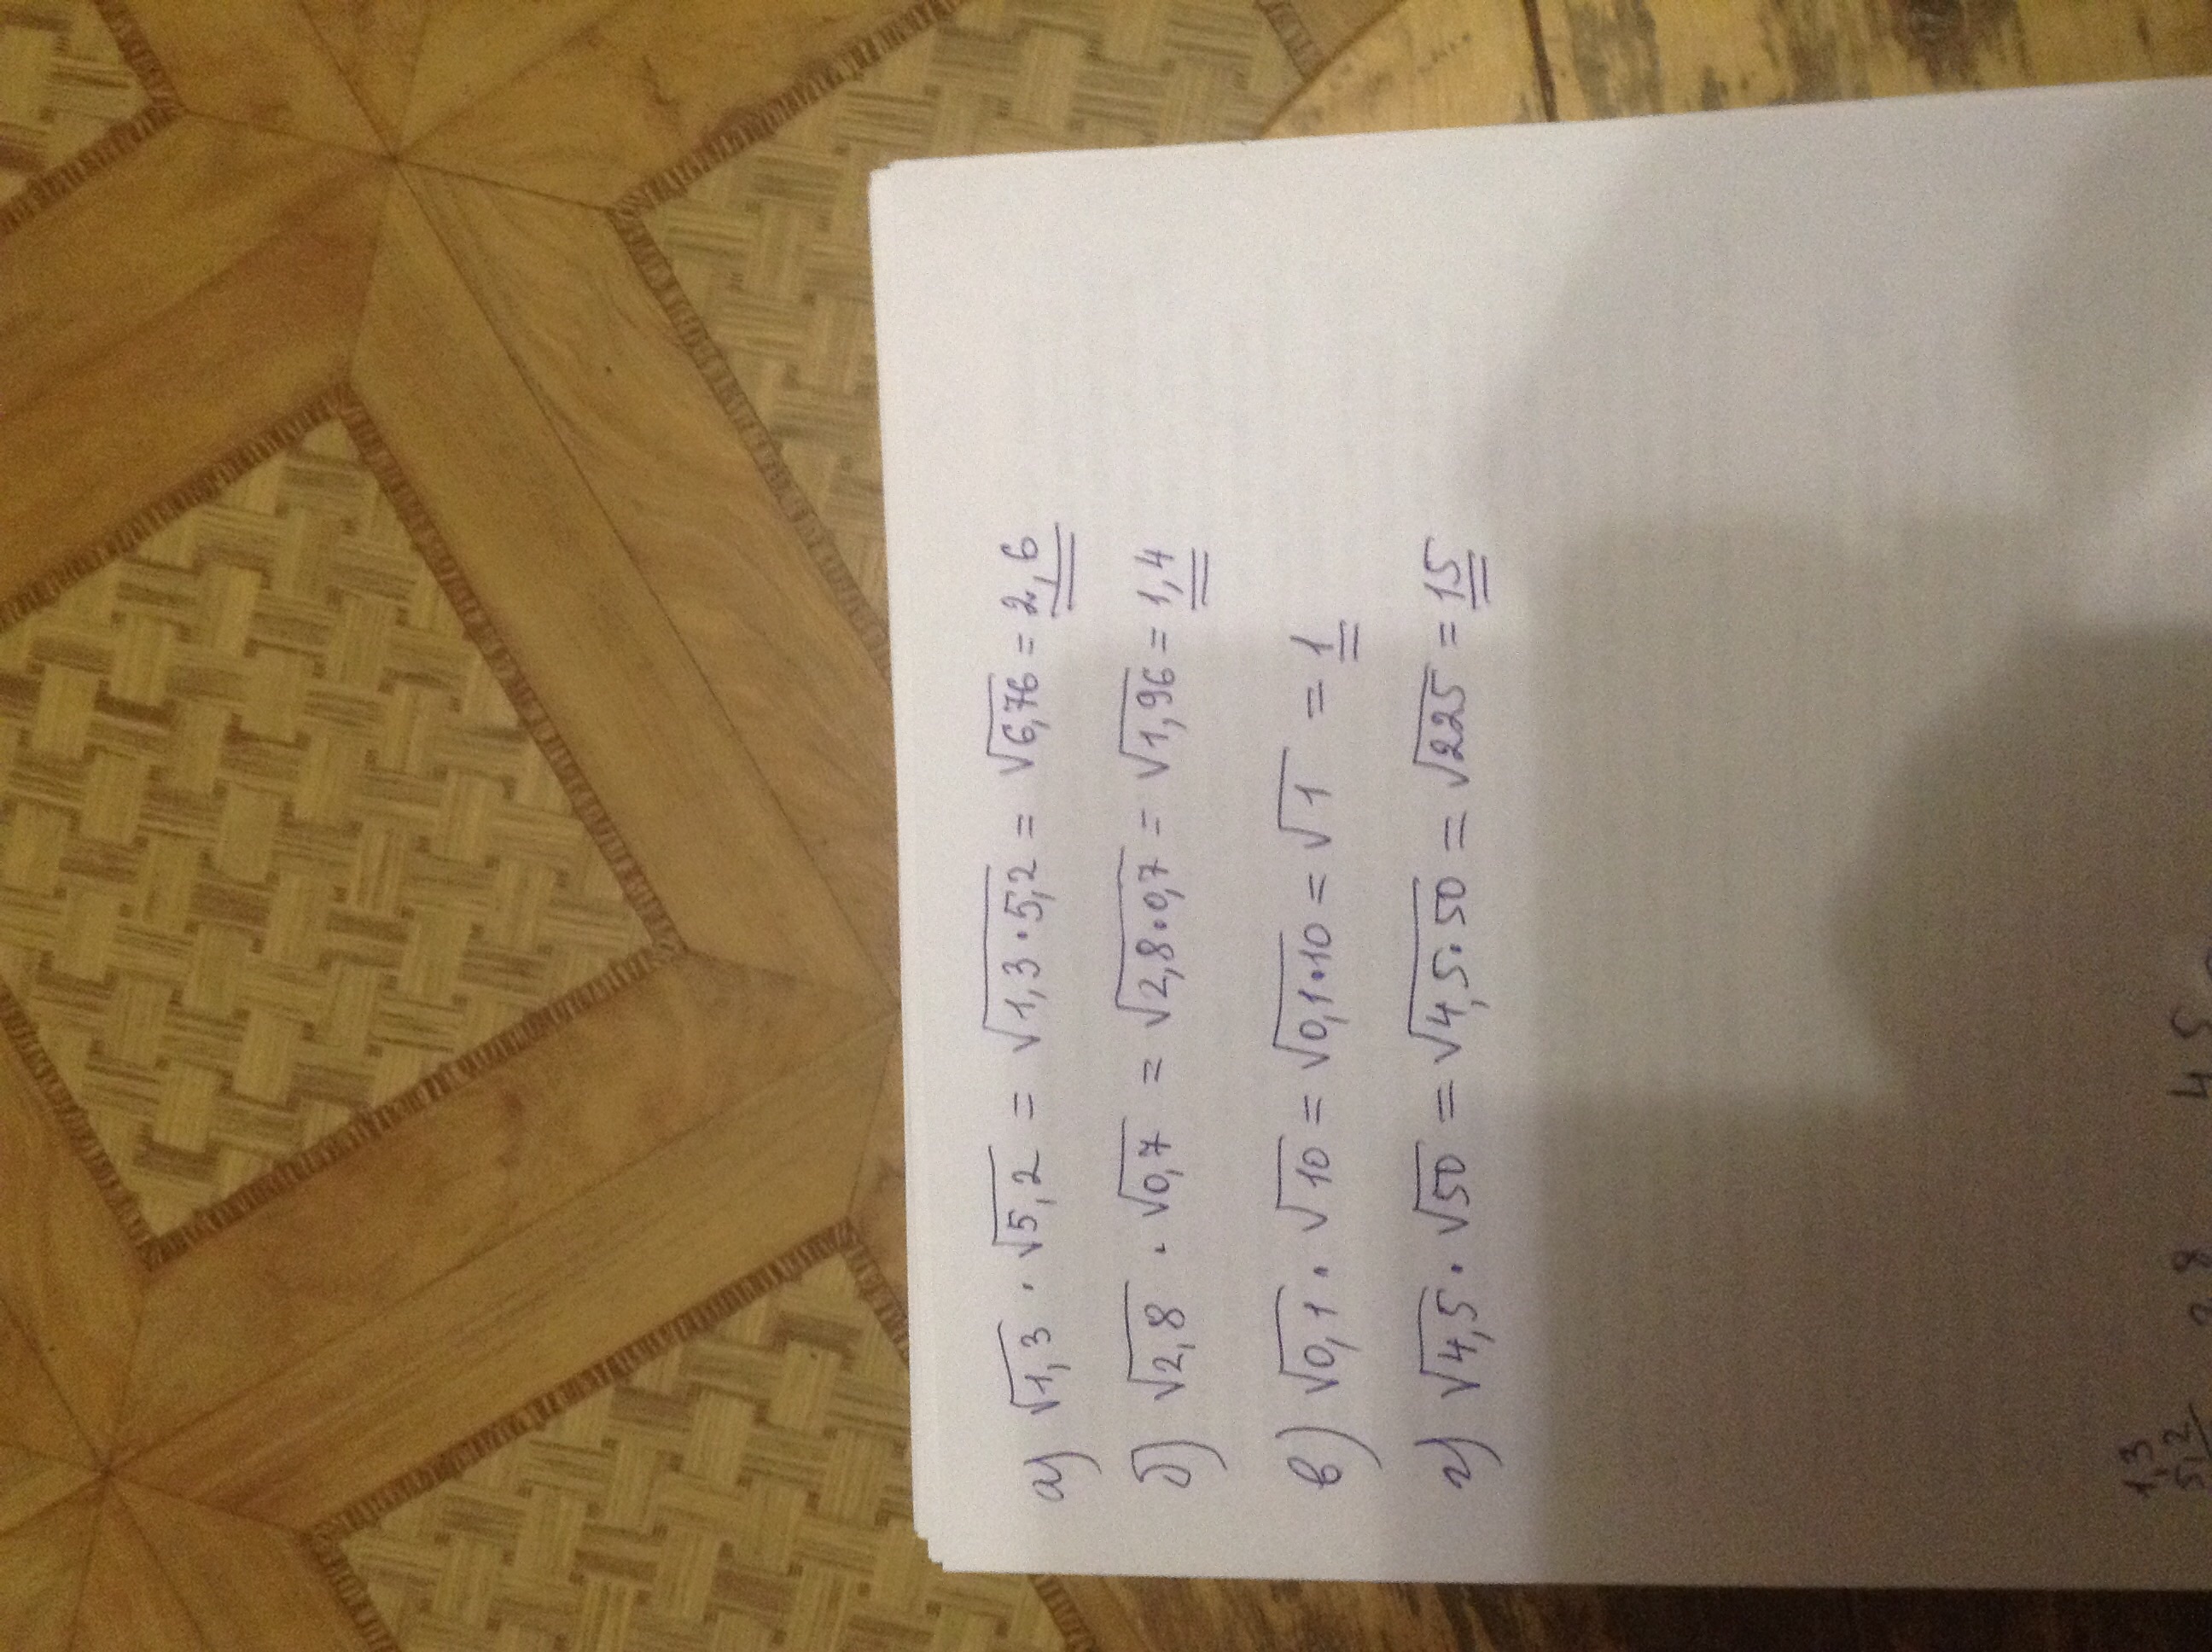 а) √1,3 · √5,2 = √1,3·5,2 = √6,76 = 2,6
б) √2,8 · √0,7 = √2,8·0,7 = √1,96 = 1,4
в) √0,1 · √10 = √0,1·10 = √1 = 1
г) √4,5 · √50 = √4,5·50 = √225 = 15
1,3
5,2